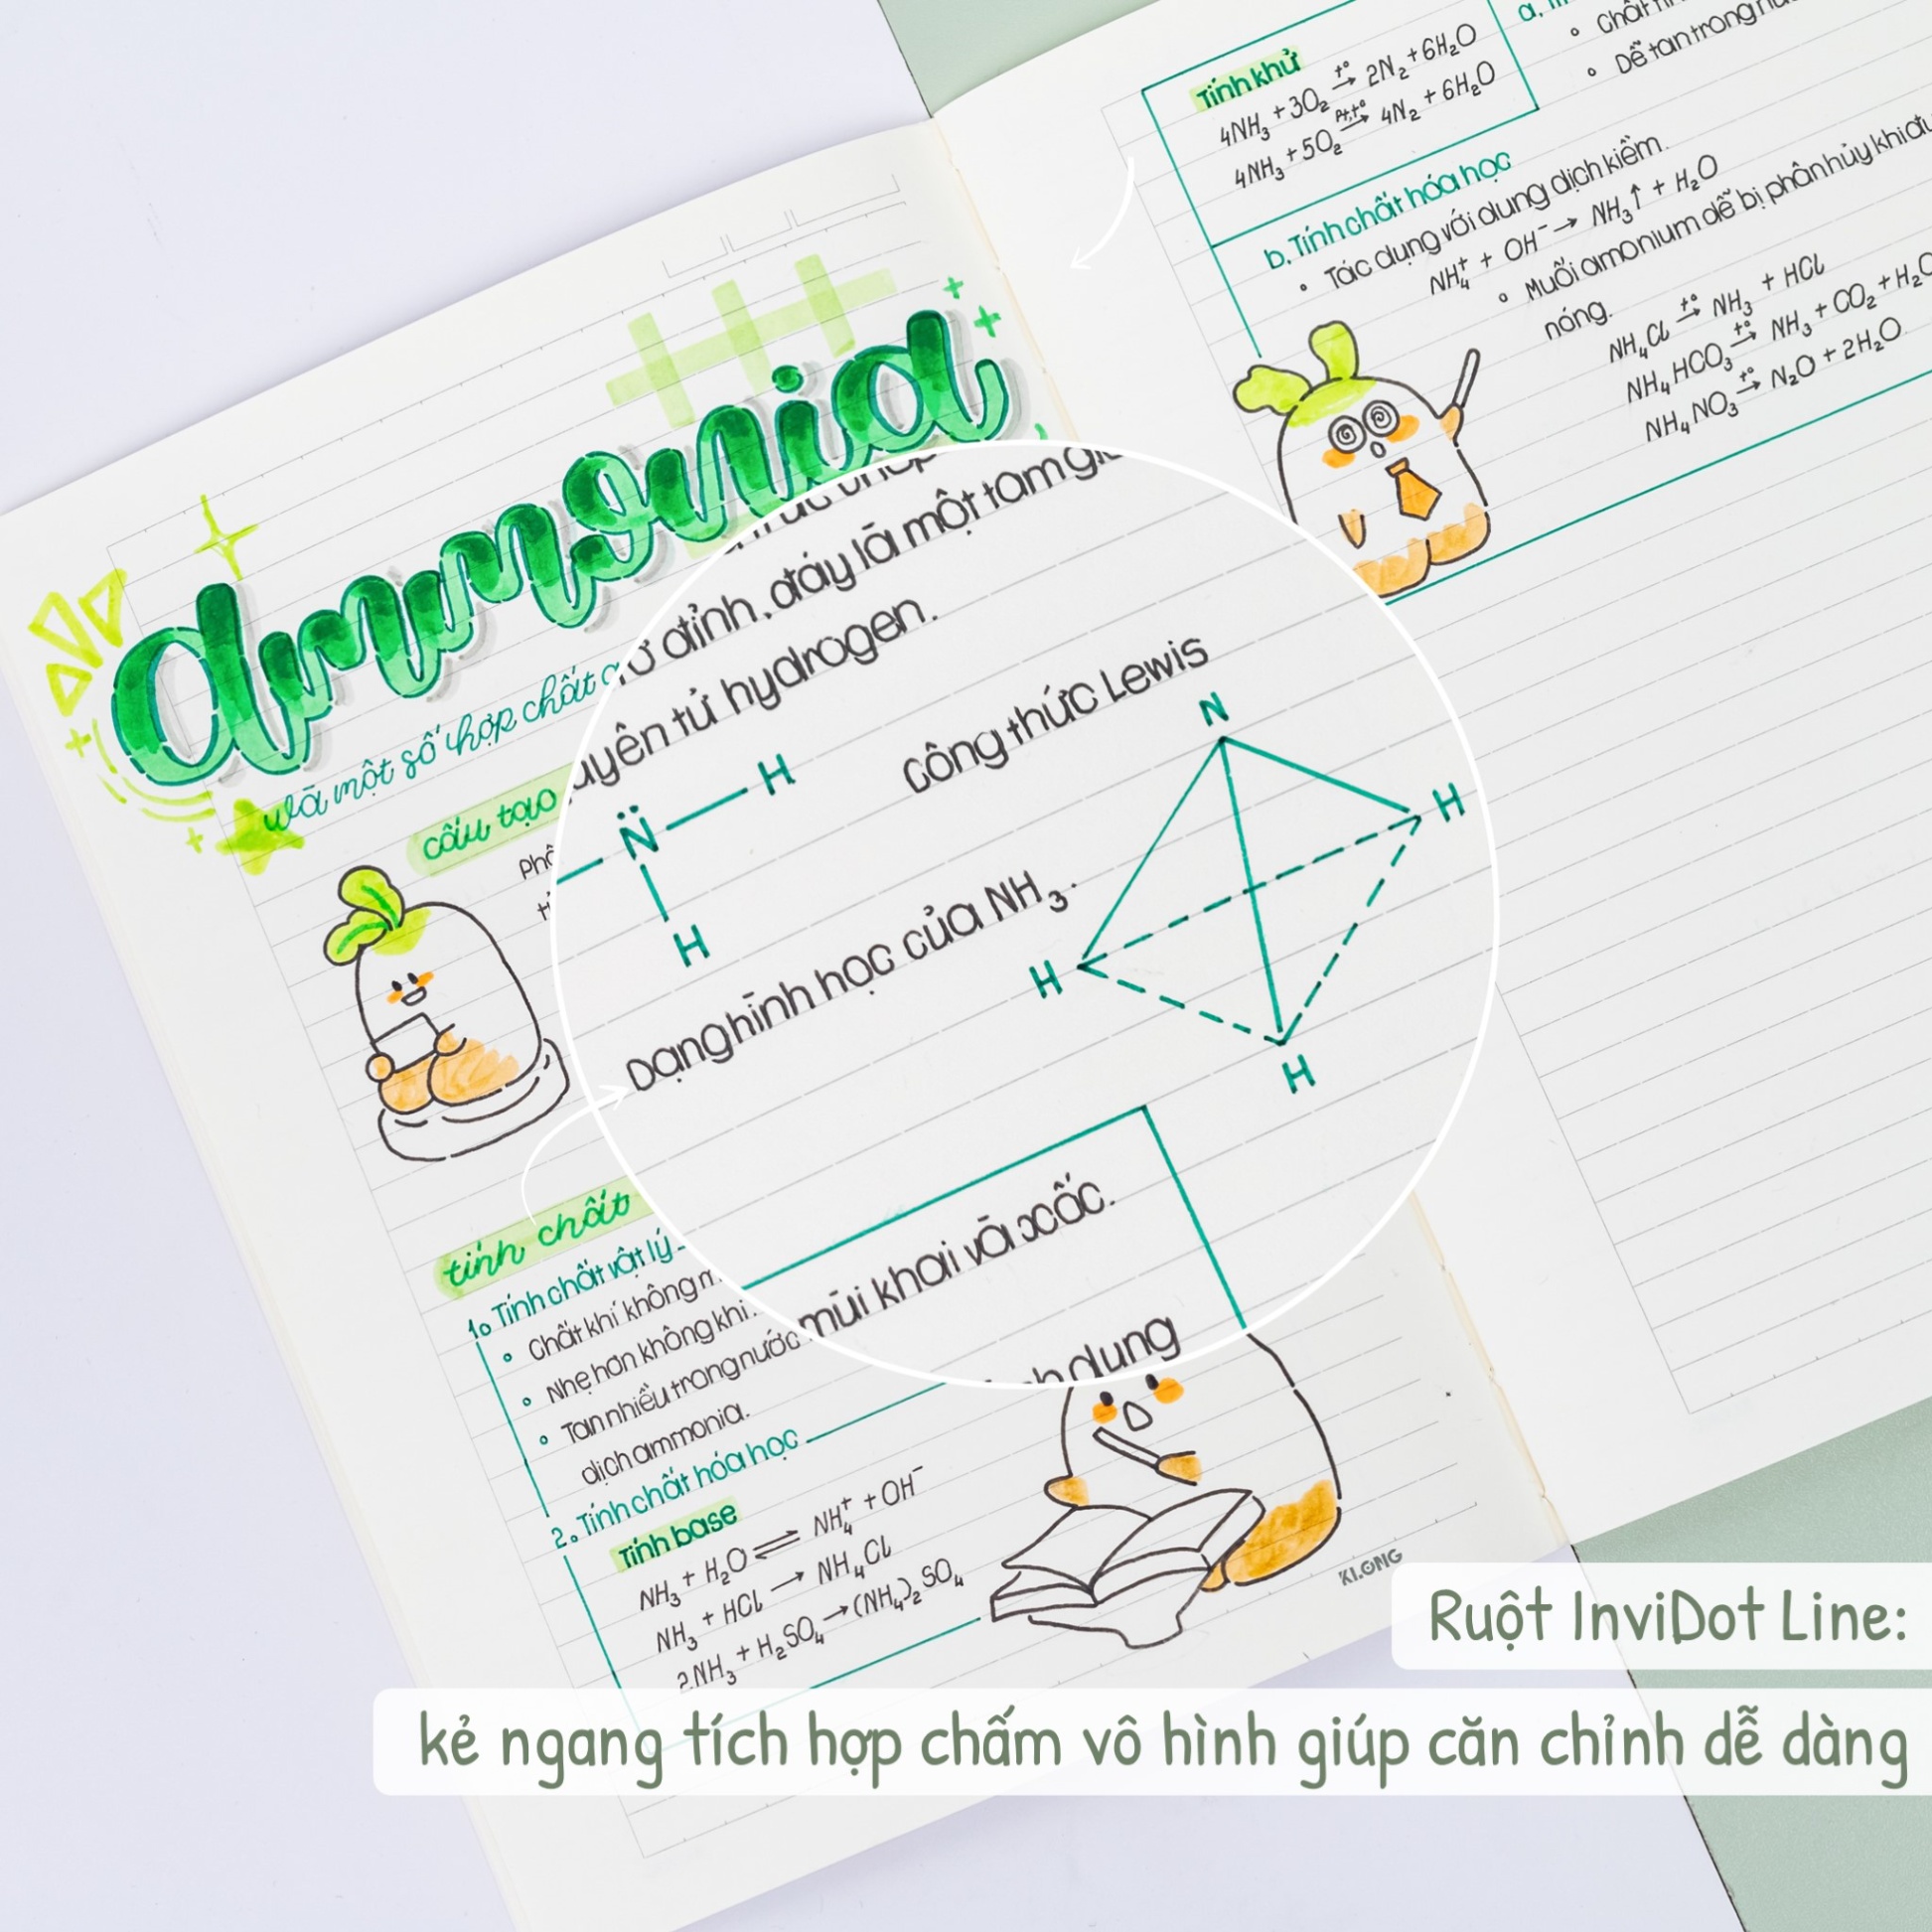 ammonia
và một số hợp chất
cấu tạo
trúc chóp
đỉnh, đáy là một tam
tử hydrogen.
N H
H
Công thức Lewis
Dạng hình học của NH₃.
N
H
H
H
tính chất
1. Tính chất vật lý
Chất khí không
mùi khai và xốc.
Nhẹ hơn không khí.
Tan nhiều trong nước
dung
dịch ammonia.
2. Tính chất hóa học
Tính base
NH₃ + H₂O ⇌ NH₄⁺ + OH⁻
NH₃ + HCl → NH₄Cl
2NH₃ + H₂SO₄ → (NH₄)₂SO₄
KLONG
Tính khử
4NH₃ + 3O₂ →t° 2N₂ + 6H₂O
4NH₃ + 5O₂ →Pt,t° 4N₂ + 6H₂O
Dễ tan trong
b. Tính chất hóa học
Tác dụng với dung dịch kiềm.
NH₄⁺ + OH⁻ → NH₃↑ + H₂O
Muối amonium dễ bị phân hủy khi
nóng.
NH₄Cl →t° NH₃ + HCl
NH₄HCO₃ →t° NH₃ + CO₂ + H₂O
NH₄NO₃ →t° N₂O + 2H₂O
Ruột InviDot Line:
kẻ ngang tích hợp chấm vô hình giúp căn chỉnh dễ dàng